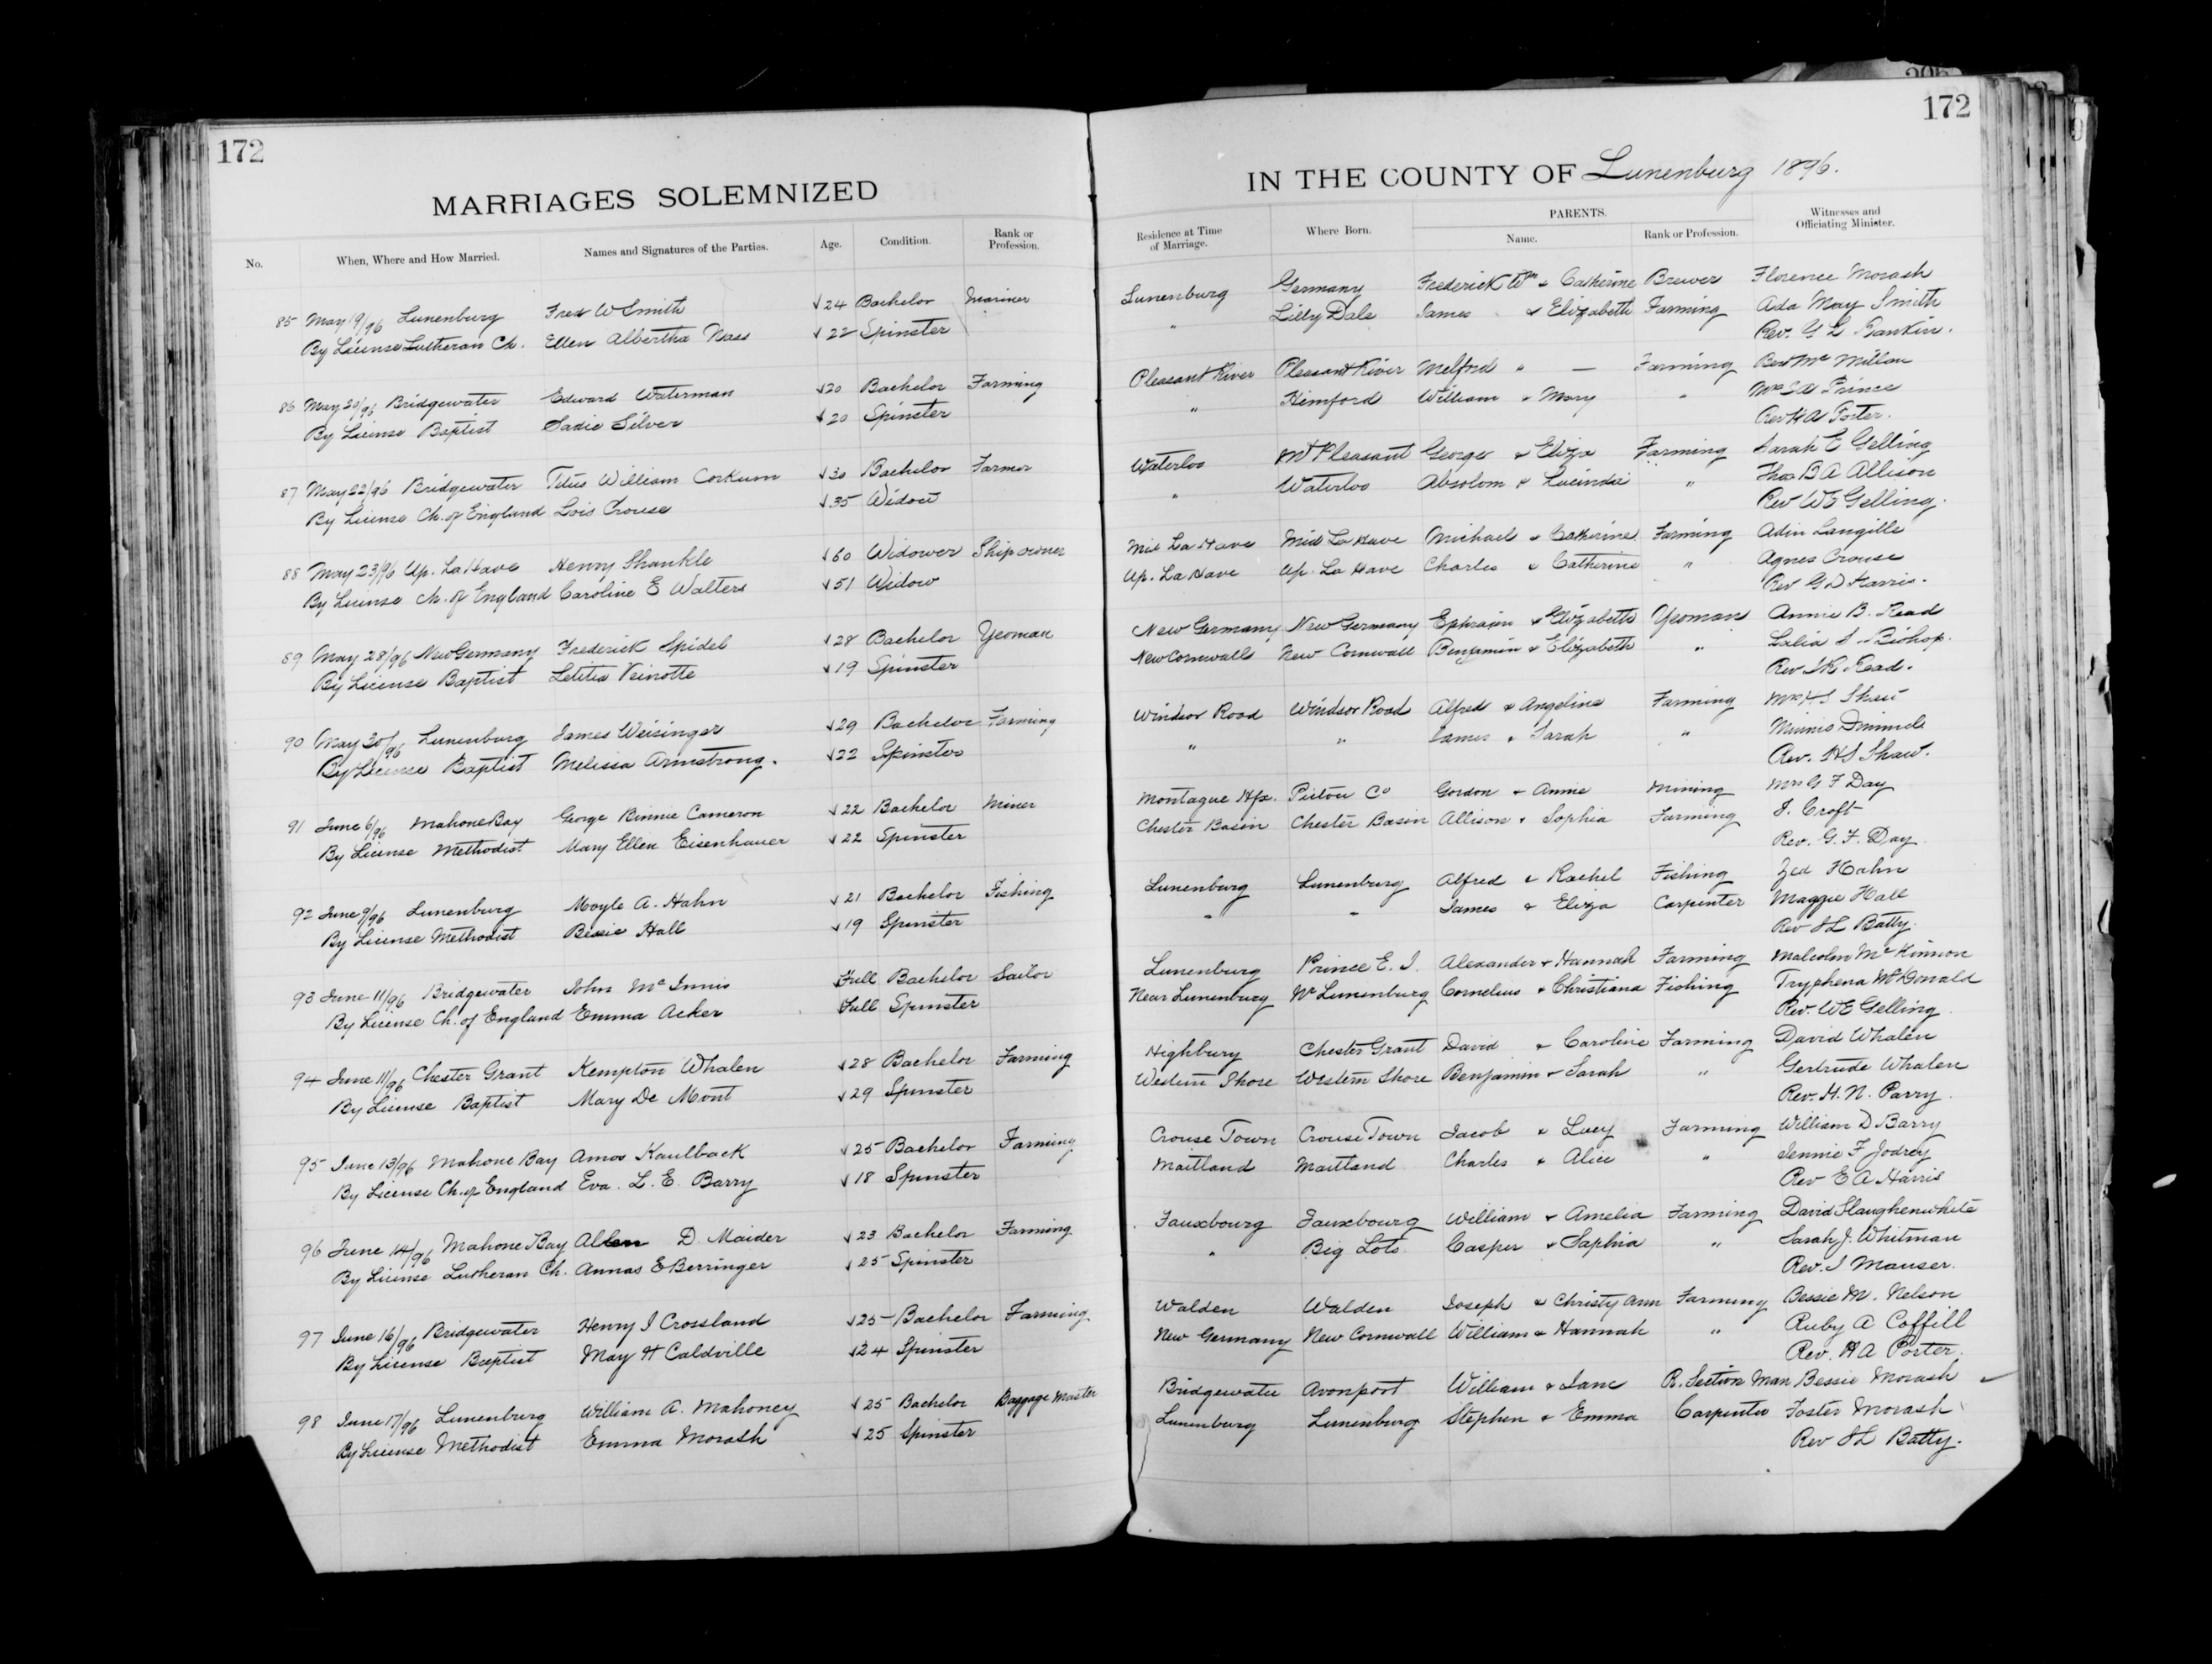 172
MARRIAGES SOLEMNIZED
No. When, Where and How Married. Names and Signatures of the Parties. Age. Condition. Rank or Profession.
85 May 19/96 Lunenburg Fred W Smith √24 Bachelor Mariner
By License Lutheran Ch. Ellen Albertha Nass √22 Spinster
86 May 20/96 Bridgewater Edward Waterman √20 Bachelor Farming
By License Baptist Sadie Silver √20 Spinster
87 May 22/96 Bridgewater Titus William Corkum √30 Bachelor Farmer
By License Ch. of England Lois Crouse √35 Widow
88 May 23/96 Up. LaHave Henry Shankle √60 Widower Ship owner
By License Ch. of England Caroline E Walters √51 Widow
89 May 28/96 New Germany Frederick Spidel √28 Bachelor Yeoman
By License Baptist Letitia Veinotte √19 Spinster
90 May 30/96 Lunenburg James Weisinger √29 Bachelor Farming
By License Baptist Melissa Armstrong. √22 Spinster
91 June 6/96 Mahone Bay George Binnie Cameron √22 Bachelor Miner
By License Methodist Mary Ellen Eisenhauer √22 Spinster
92 June 9/96 Lunenburg Moyle A. Hahn √21 Bachelor Fishing
By License Methodist Bessie Hall √19 Spinster
93 June 11/96 Bridgewater John McInnis Full Bachelor Sailor
By License Ch. of England Emma Acker Full Spinster
94 June 11/96 Chester Grant Kempton Whalen √28 Bachelor Farming
By License Baptist Mary De Mont √29 Spinster
95 June 13/96 Mahone Bay Amos Kaulback √25 Bachelor Farming
By License Ch. of England Eva. L. E. Barry √18 Spinster
96 June 14/96 Mahone Bay Allen D. Maider √23 Bachelor Farming
By License Lutheran Ch. Annas E Berringer √25 Spinster
97 June 16/96 Bridgewater Henry I Crossland √25 Bachelor Farming
By License Baptist May H Caldville √24 Spinster
98 June 17/96 Lunenburg William A. Mahoney √25 Bachelor Baggage Master
By License Methodist Emma Morash √25 Spinster
172
IN THE COUNTY OF Lunenburg 1896.
Residence at Time of Marriage. Where Born. PARENTS. Name. Rank or Profession. Witnesses and Officiating Minister.
Lunenburg Germany Frederick Wm & Catherine Brewer Florence Morash
" Lilly Dale James & Elizabeth Farming Ada May Smith
Rev. Y L Rankin.
Pleasant River Pleasant River Melford " — Farming Bert McMillan
" Hemford William & Mary " Prince
Rev H A Porter.
Waterloo Mt Pleasant George & Eliza Farming Sarah E Gelling
" Waterloo Absolom & Lucinda " Thos B A Allison
Rev W E Gelling.
Mid La Have Mid La Have Michael & Catherine Farming Adin Langille
Up. La Have Up. La Have Charles & Catherine " Agnes Crouse
Rev G D Harris.
New Germany New Germany Ephraim & Elizabeth Yeoman Annie B. Read
New Cornwall New Cornwall Benjamin & Elizabeth " Lalia S. Bishop.
Rev J R Read.
Windsor Road Windsor Road Alfred & Angeline Farming Mrs H S Shaw
" " James & Sarah " Minnie
Rev. H S Shaw.
Montague Hfx. Pictou Co Gordon & Annie Mining Mrs G F Day
Chester Basin Chester Basin Allison & Sophia Farming J. Croft
Rev. G. F. Day
Lunenburg Lunenburg Alfred & Rachel Fishing Zed Hahn
" " James & Eliza Carpenter Maggie Hall
Rev J L Batty.
Lunenburg Prince E. I. Alexander & Hannah Farming Malcolm McKinnon
Near Lunenburg Nr Lunenburg Cornelius & Christiana Fishing Tryphena McDonald
Rev. W E Gelling
Highbury Chester Grant David & Caroline Farming David Whalen
Western Shore Western Shore Benjamin & Sarah " Gertrude Whalen
Rev. H. N. Parry.
Crouse Town Crouse Town Jacob & Lucy Farming William D Barry
Maitland Maitland Charles & Alice " Jennie F Jodrey
Rev E A Harris
Fauxbourg Fauxbourg William & Amelia Farming David Slaughenwhite
" Big Lots Casper & Saphia " Sarah J. Whitman
Rev. J Mauser.
Walden Walden Joseph & Christy Ann Farming Bessie M. Nelson
New Germany New Cornwall William & Hannah " Ruby A Coffill
Rev. H A Porter.
Bridgewater Avonport William & Jane R. Section Man Bessie Morash
Lunenburg Lunenburg Stephen & Emma Carpenter Foster Morash
Rev J L Batty.